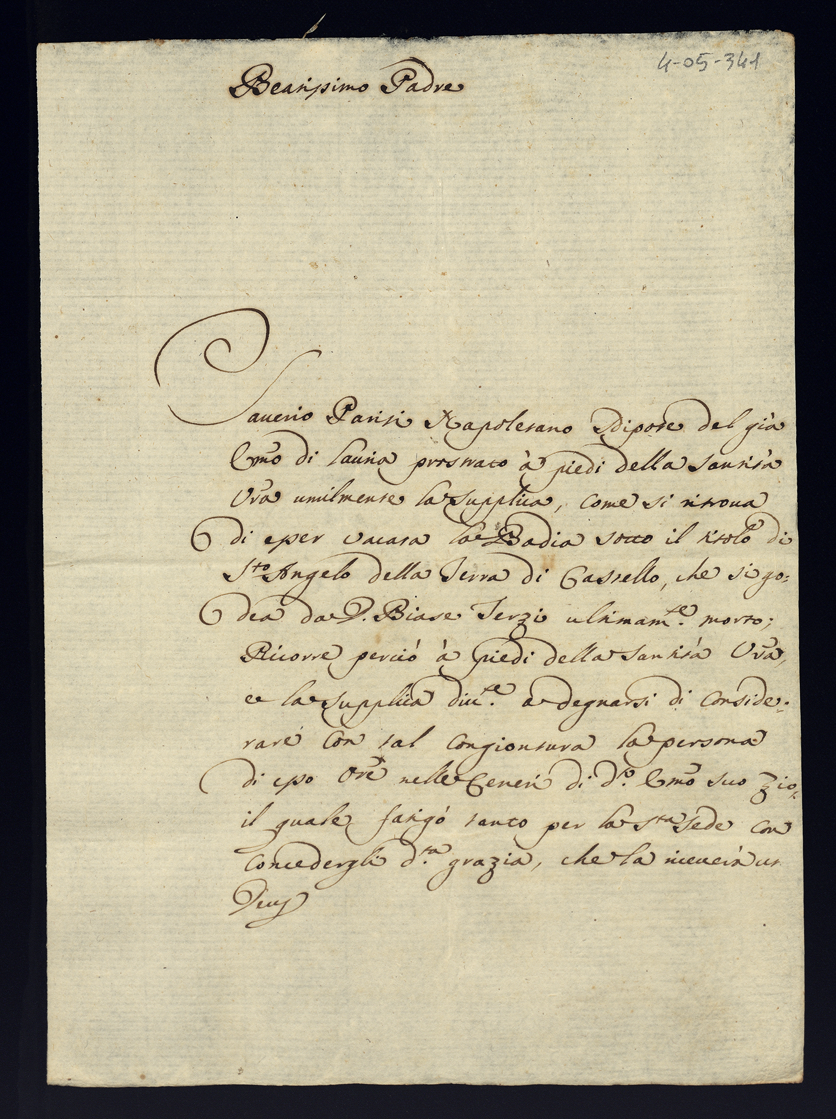 4-05-341
Beatissimo Padre
Saverio Parisi Napoletano Nipote del già
Emo di Lauria prostrato à piedi della Santità
Vra umilmente la supplica, come si ritrova
di esser vacata la Badia sotto il titolo di
Sto Angelo della Terra di Castello, che si go:
dea da D. Biase Terzi ultimamte. morto;
Ricorre perciò à piedi della Santità Vra,
e la supplica divte. à degnarsi di conside:
rare con tal congiontura la persona
di epo Ore nelle Ceneri di do. Emo suo zio,
il quale fatigò tanto per la Sta Sede con
concedergli dta. grazia, che la riceverà ut
Deus